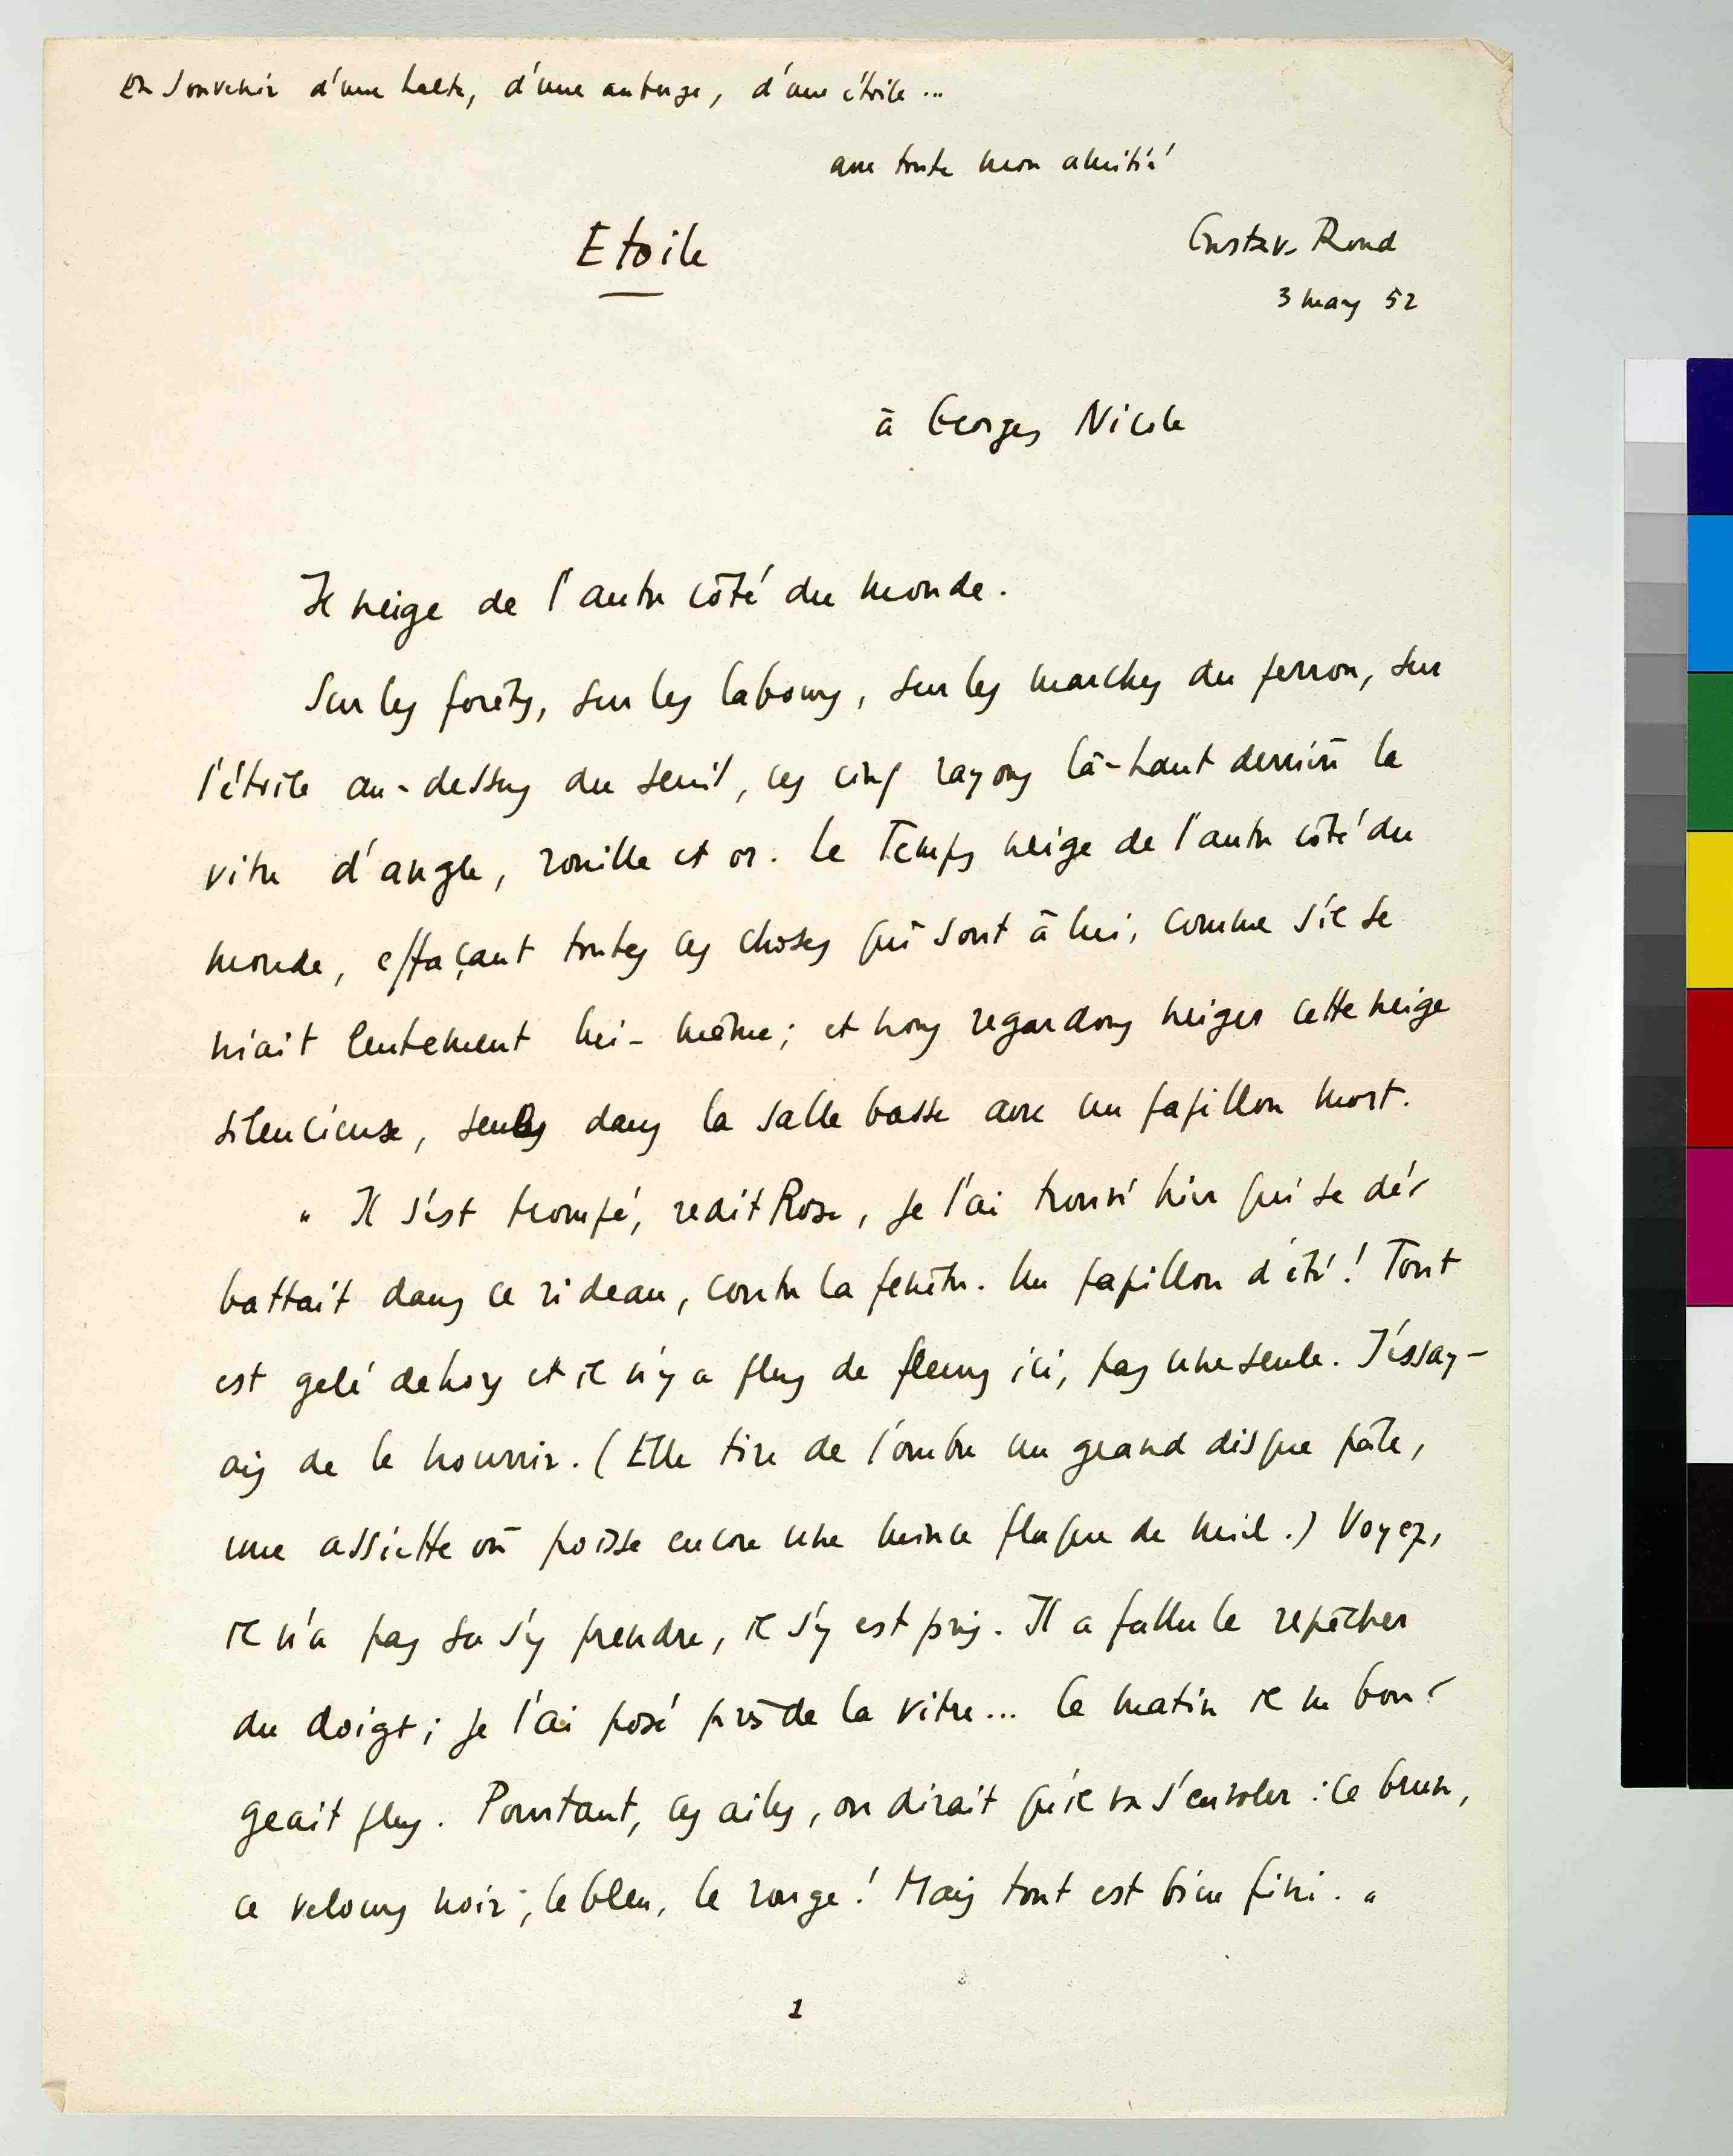 en souvenir d'une halte, d'une auberge, d'une étoile ...
avec toute mon amitié
Etoile
Gustave Roud
3 mars 52
à Georges Nicole
Il neige de l'autre côté du monde.
Sur les forêts, sur les labours, sur les marches du perron, sur
l'étoile au-dessus du seuil, ces cinq rayons là-haut derrière la
vitre d'angle, rouille et or. Le Temps neige de l'autre côté du
monde, effaçant toutes ces choses qui sont à lui, comme s'il se
niait lentement lui-même; et nous regardons neiger cette neige
silencieuse, seuls dans la salle basse avec un papillon mort.
" Il s'est trompé, redit Rose, je l'ai trouvé hier qui se dé-
battait dans ce rideau, contre la fenêtre. Un papillon d'été! Tout
est gelé dehors et il n'y a plus de fleurs ici, pas une seule. J'essay-
ais de le nourrir. (Elle tire de l'ombre un grand disque pâle,
une assiette où poisse encore une mince flaque de miel.) Voyez,
il n'a pas su s'y prendre, il s'y est pris. Il a fallu le repêcher
du doigt; je l'ai posé près de la vitre... Ce matin il ne bou-
geait plus. Pourtant, ces ailes, on dirait qu'il va s'envoler : ce brun,
ce velours noir, le bleu, le rouge! Mais tout est bien fini. "
1